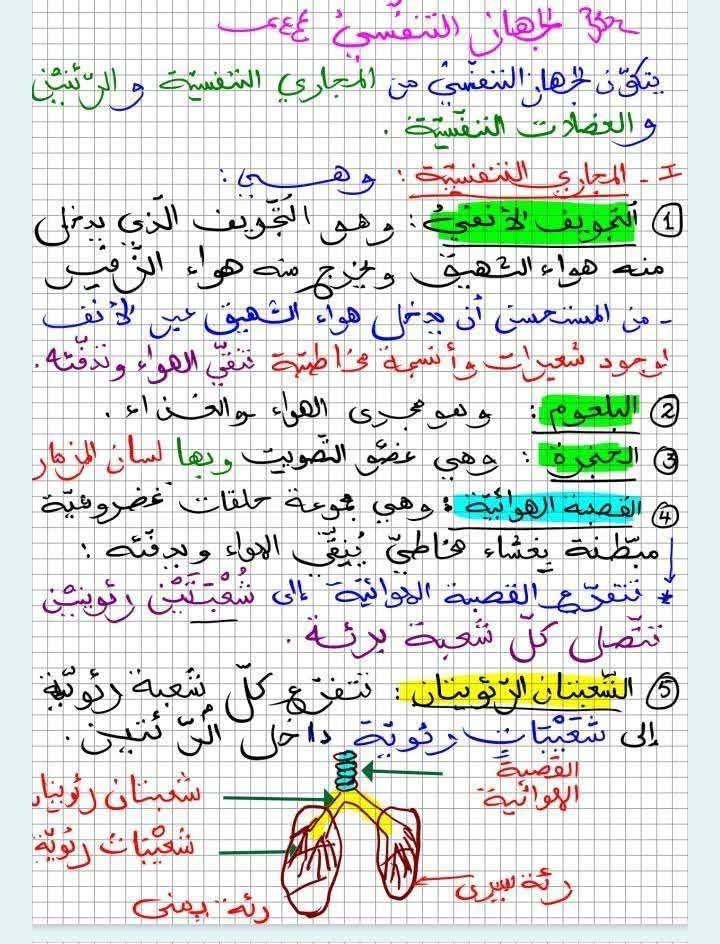 الجهاز التنفسي
يتكوّن الجهاز التنفسيّ من المجاري التنفسية و الرّئتين
و العضلات التنفسيّة .
I - المجاري التنفسيّة : وهــي :
① التجويف الأنفيّ : وهو التّجويف الّذي يدخل
منه هواء الشهيق ويخرج منه هواء الزّفير
- من المستحسن أن يدخل هواء الشهيق عبر الأنف
لوجود شعيرات و أنسجة مخاطيّة تنقّي الهواء وتدفّئه.
② البلعوم : وهو مجرى الهواء والغذاء .
③ الحنجرة : وهي عضو التّصويت وبها لسان المزمار
④ القصبة الهوائيّة : وهي مجموعة حلقات غضروفيّة
مبطّنة بغشاء مخاطيّ يُنقّي الهواء ويدفّئه :
* تتفرّع القصبة الهوائيّة إلى شُعْبَتَيْن رئويتيْن
تتّصل كلّ شعبة برئة .
⑤ الشّعبتان الرّئويتان : تتفرّع كلّ شعبة رئويّة
إلى شُعَيْبَاتٍ رئويّة داخل الرّئتين .
القصبة
الهوائية
شعبتان رئويتان
شعيْبات رئويّة
رئة يسرى
رئة يمنى